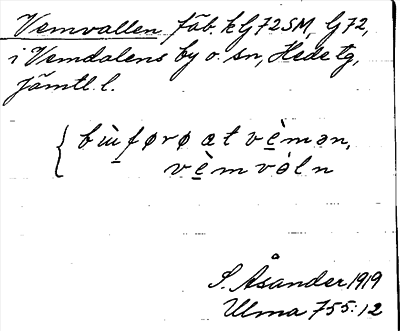 Vemvallen fäb. k G 72 SM, G 72,
i Vemdalens by o. sn, Hede tg,
Jämtl. l.
{ bù̖førø æt vè̠mən,
vè̠mvȯln
S. Åsander 1919
Ulma 755:12